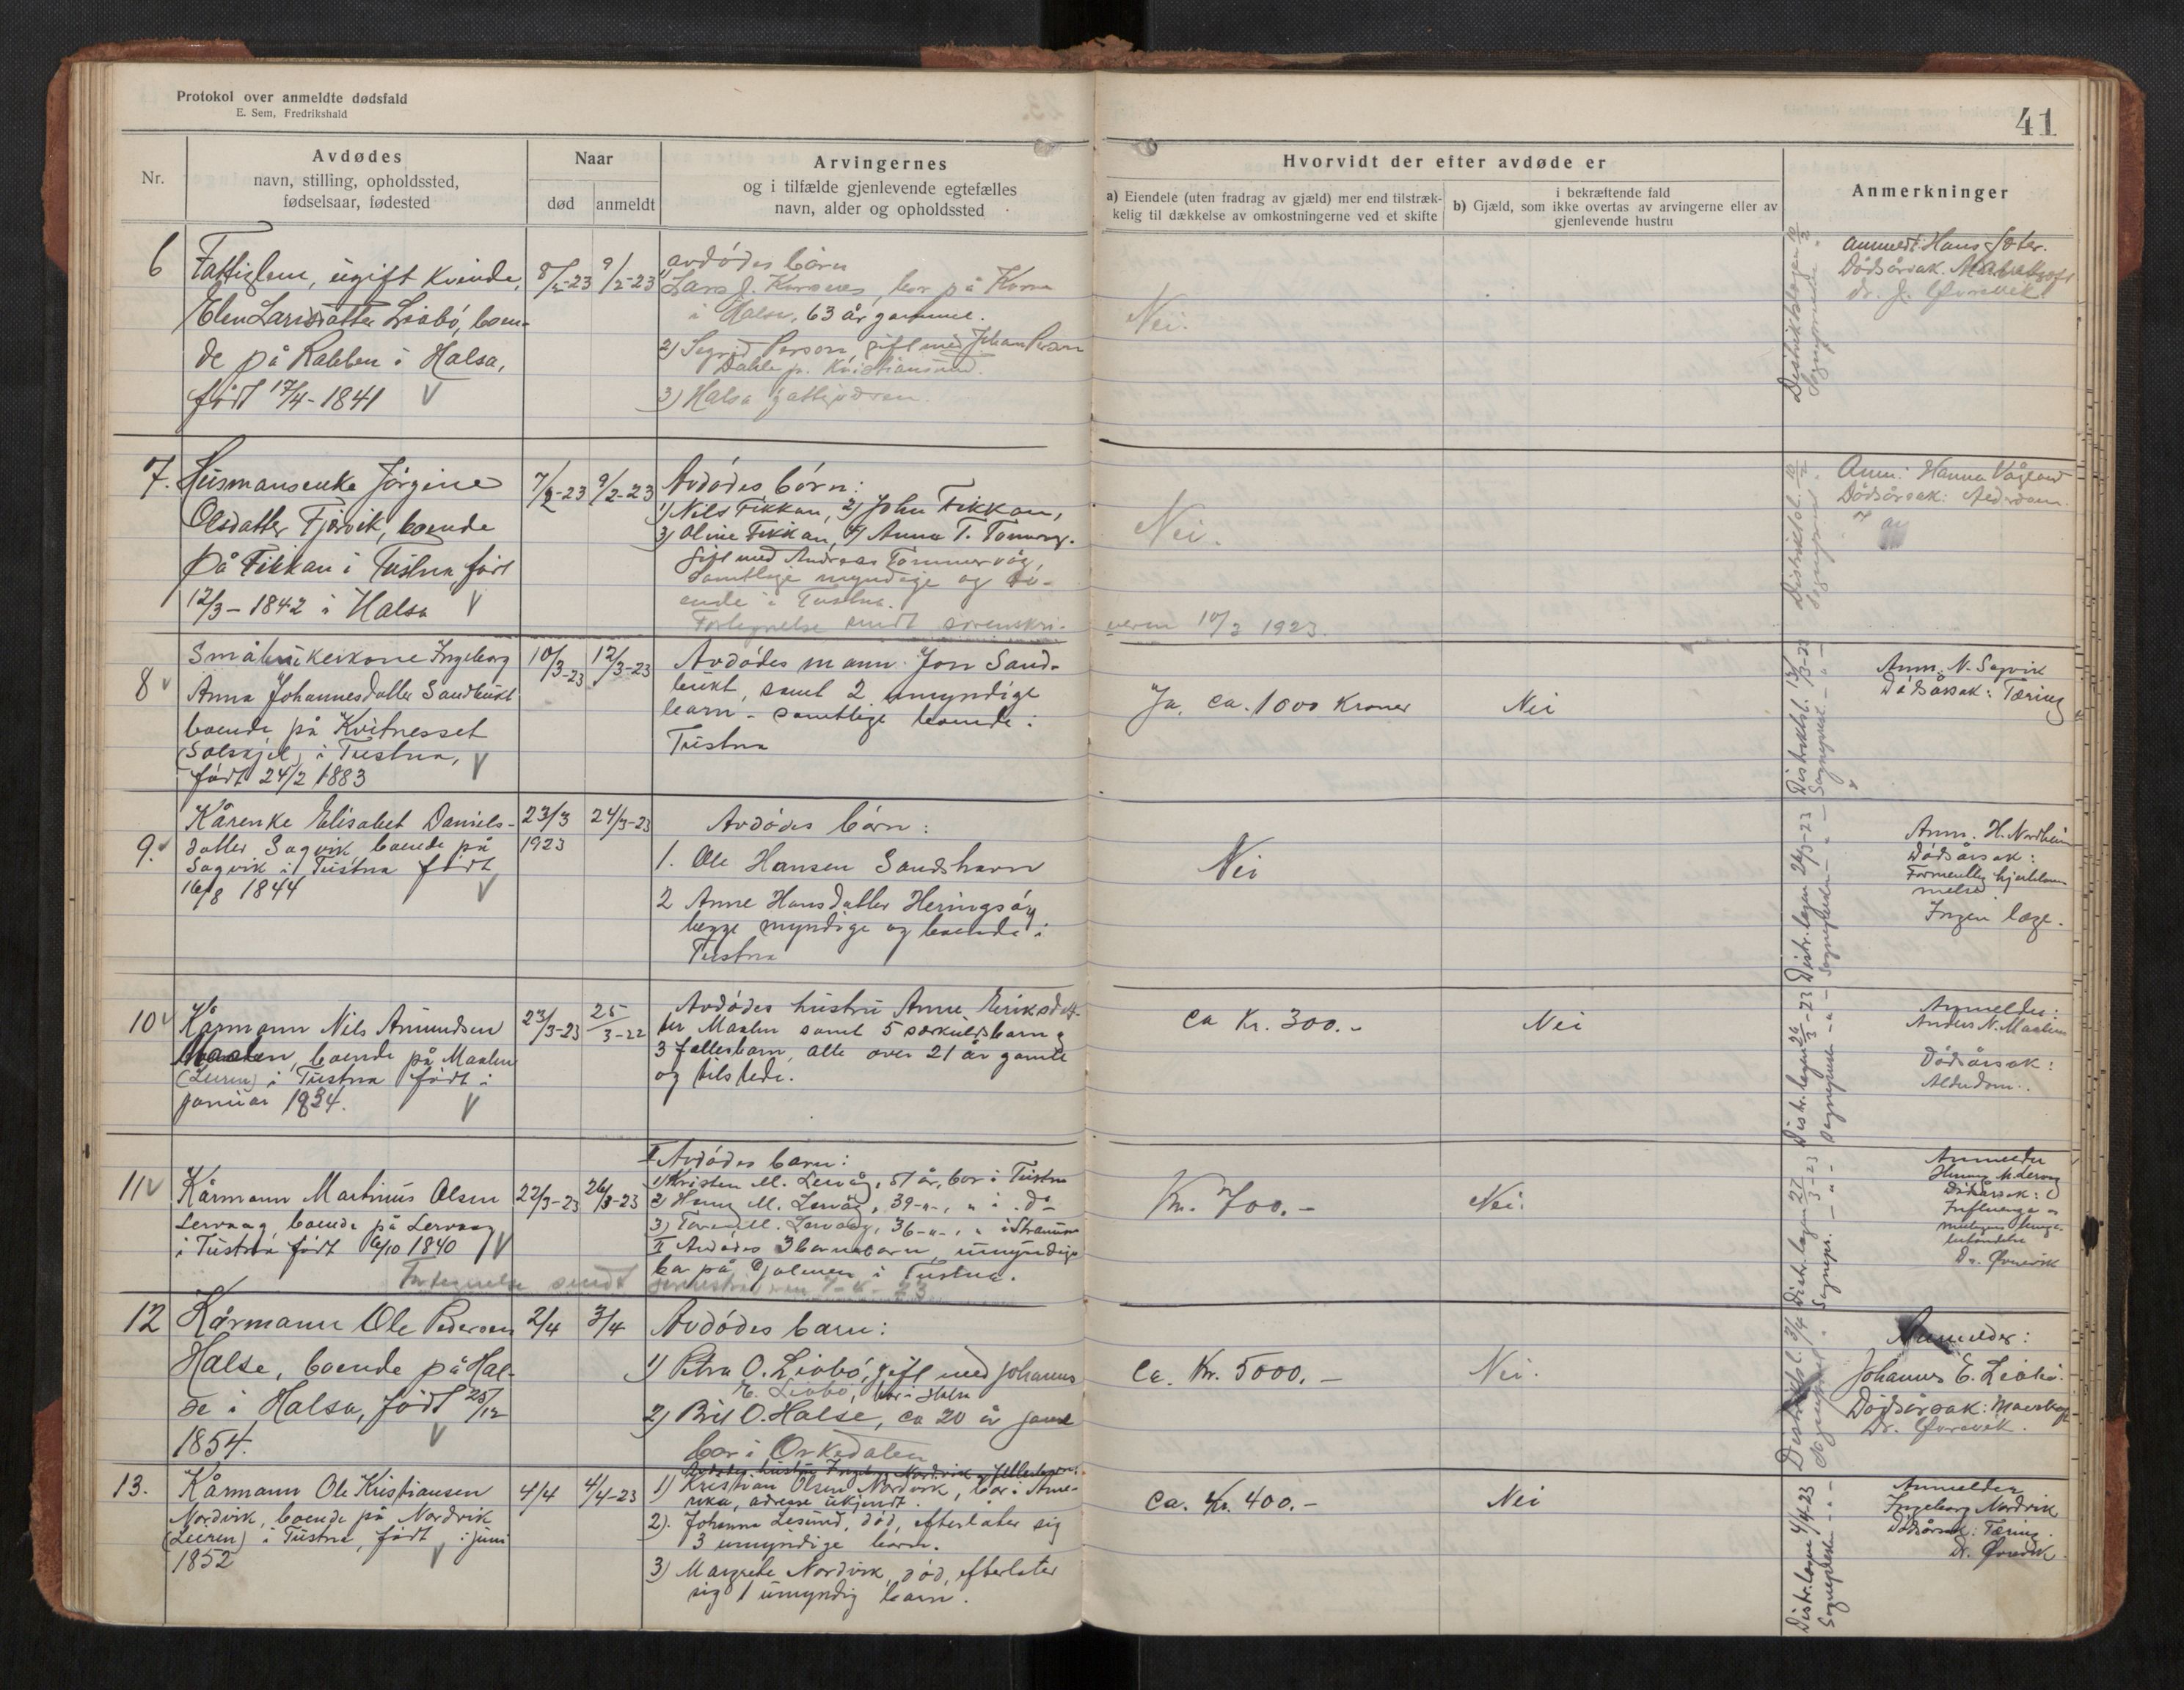 Protokol over anmeldte dødsfald
E. Sem, Fredrikshald
41
Nr.
Avdødes
navn, stilling, opholdssted,
fødselsaar, fødested
Naar
død
anmeldt
Arvingernes
og i tilfælde gjenlevende egtefælles
navn, alder og opholdssted
Hvorvidt der efter avdøde er
a) Eiendele (uten fradrag av gjæld) mer end tilstræk-
kelig til dækkelse av omkostningerne ved et skifte
i bekræftende fald
b) Gjæld, som ikke overtas av arvingerne eller av
gjenlevende hustru
Anmerkninger
6
Fattiglem, ugift kvinde,
Elen Larsdatter Liabö, boen-
de på Rabben i Halsa,
född 17/4-1841
8/2-23
9/2-23
avdödes börn
1) Lars J. , bor på
i Halsa, 63 år gammel.
2) Sigrid Person, gift med Johan Person
Dahle p. Kristiansund.
3) Halsa
Nei.
Distriktslægen 10/2
Sogneprest
anmeldt: Hans
Dödsårsak.
dr. J. Øvrevik
7.
Husmansenke Jörgine
Olsdatter Fjærvik, boende
på Fikkan i Tustna, född
12/3-1842 i Halsa
7/2-23
9/2-23
Avdödes börn:
1) Nils Fikkan, 2) John Fikkan,
3) Oline Fikkan, 4) Anna T. Tömmerv.
gift med Andreas Tömmervåg,
samtlige myndige og bo-
ende i Tustna.
Fortegnelse sendt sorenskri-
veren 10/2 1923.
Nei.
Distriktsl. 10/2
Sogneprest
Anm: Hanna Vågland
Dödsårsak: Alderdom
8
Småbrukerkone Ingeborg
Anna Johannesdatter Sandbukt
boende på Kvitnesset
(Solskjel) i Tustna,
född 24/2 1883
10/3-23
12/3-23
Avdödes mann Jon Sand-
bukt, samt 2 umyndige
barn - samtlige boende i
Tustna
Ja, ca. 1000 Kroner
Nei
Distriktsl. 13/3-23
Sogneprest - " -
Anm. N. Sagvik
Dödsårsak: Tæring
9.
Kårenke Elisabet Daniels-
datter Sagvik boende på
Sagvik i Tustna född
16/8 1844
23/3
1923
24/3-23
Avdödes börn:
1. Ole Hansen Sandshavn
2 Anne Hansdatter Heringsöy
begge myndige og boende i
Tustna
Nei
Distr.lægen 24/3-23
Sognepresten - " -
Anm. H. Nordheim
Dödsårsak:
Formentlig hjertelam-
melse
Ingen læge.
10
Kårmann Nils Amundsen
Maalen, boende på Maalen
(Leiren) i Tustna född i
januar 1834.
23/3-23
25/3-22
Avdödes hustru Anne Eriksdat-
ter Maalen samt 5 særkuldsbarn og
3 fællesbarn, alle over 21 år gamle
og tilstede.
Ca Kr. 300.-
Nei
Distr.lægen 26/3-23
Sognepresten - " -
Anmelder:
Anders N. Maalen
Dödsårsak:
Alderdom.
11
Kårmann Martinus Olsen
Lervaag boende på Lervaag
i Tustna född 6/10 1840
22/3-23
26/3-23
I Avdödes barn:
1) Kristen M. Lervåg, 51 år, bor i Tustna
2) Hans M. Lervåg, 39 -"-, " i do
3) M. Lervåg, 36 -"-, " i
II Avdödes 3 barnebarn, umyndige
bor på Gjølmen i Tustna.
Fortegnelse sendt sorenskriveren 7-4-23
Kr. 700.-
Nei.
Distr.lægen 27/3-23
Sognepr. - " -
Anmelder
M. Lervåg
Dödsårsak:
Influenza og
Dr. Øvrevik
12
Kårmann Ole Pedersen
Halse, boende på Hal-
se i Halsa, född 25/12
1854.
2/4
3/4
Avdödes barn:
1) Petra O. Liabö, gift med Johannes
E. Liabö, bor i Halsa
2) Brit O. Halse, ca 20 år gamle
bor i Orkedalen
Ca. Kr. 5000.-
Nei.
Distriktsl. 3/4
Sogneprest
Anmelder:
Johannes E. Liabö.
Dödsårsak:
Dr. Øvrevik.
13.
Kårmann Ole Kristiansen
Nordvik, boende på Nordvik
(Leiren) i Tustna, född i juni
1852
4/4
4/4-23
Avdödes hustru Ingeborg Nordvik og fællesbarn:
1) Kristian Olsen Nordvik, bor i Ame-
rika, adresse ukjendt.
2). Johanna Lesund, död, efterlater sig
3 umyndige barn.
3) Margrete Nordvik, död, efterlater
sig 1 umyndig barn.
Ca. Kr. 400.-
Nei
Distr.lægen 4/4-23
Sognepresten - " -
Anmelder
Ingeborg Nordvik
Dödsårsak: Tæring.
Dr. Øvrevik